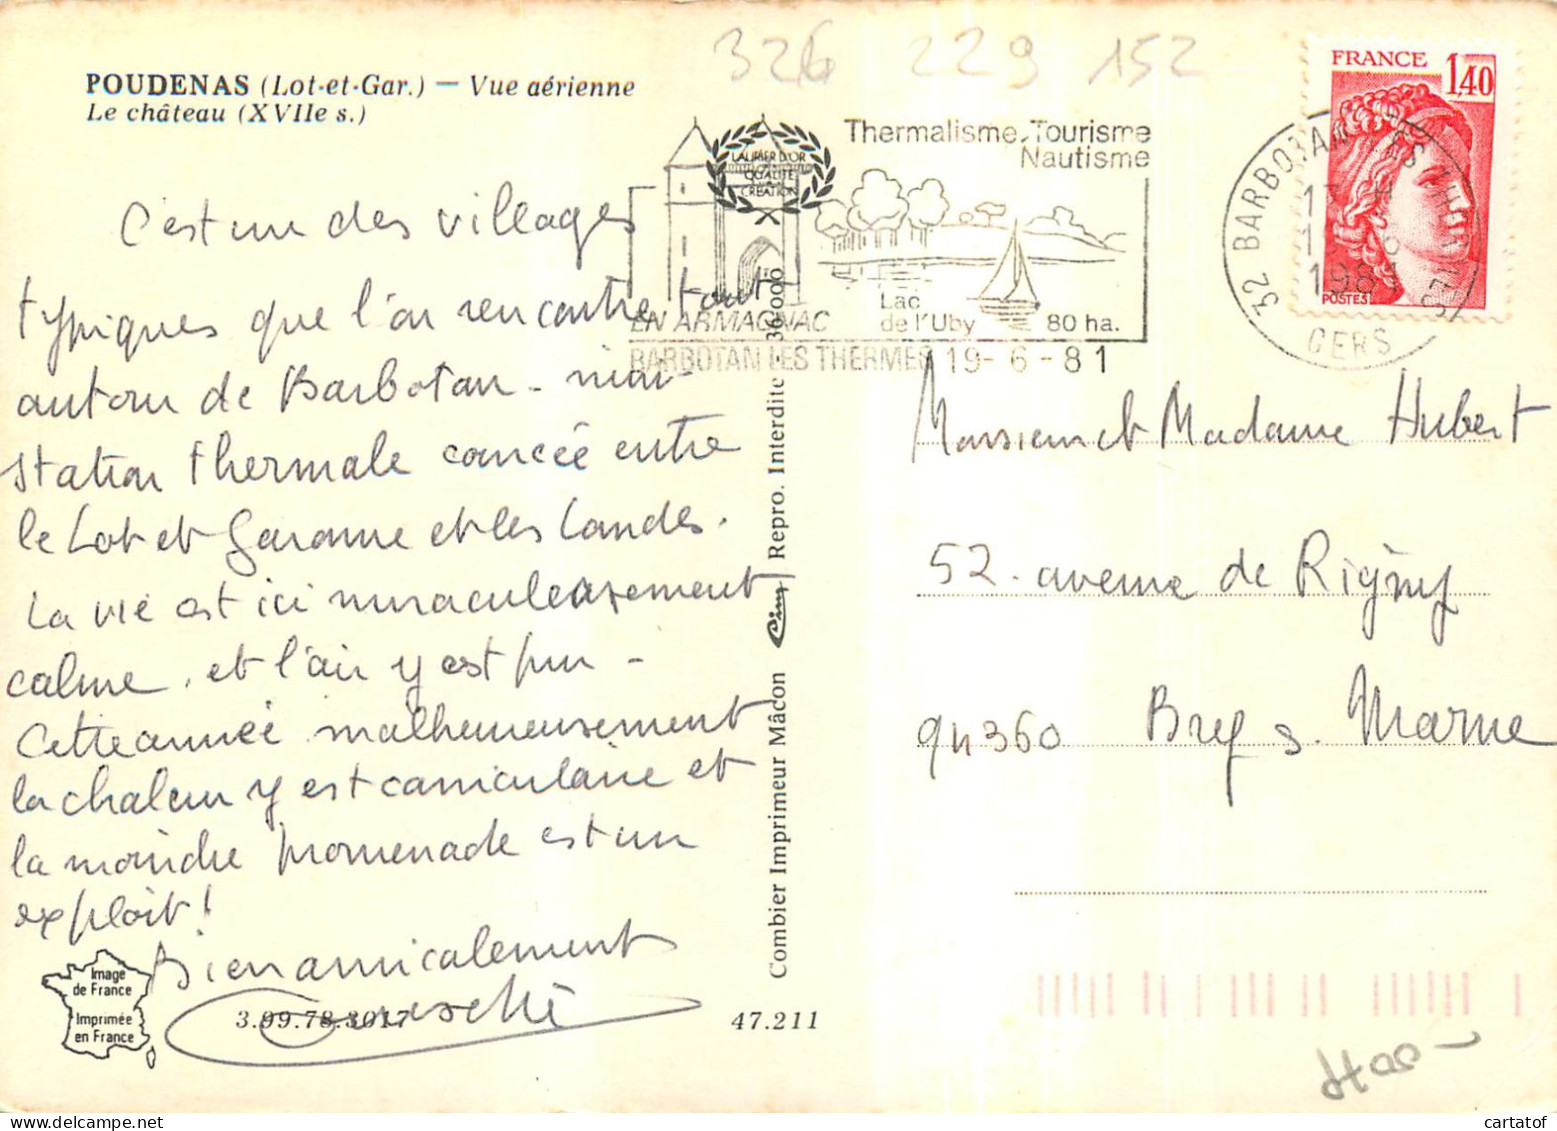 326 229 152
POUDENAS (Lot-et-Gar.) — Vue aérienne
Le château (XVIIe s.)
FRANCE 1,40
POSTES
Thermalisme, Tourisme
Nautisme
LAURIER D'OR
QUALITE
CREATION
Lac
de l'Uby
80 ha.
EN ARMAGNAC
BARBOTAN LES THERMES 19-6-81
32 BARBOTAN LES THERMES
1981
GERS
C'est un des villages
typiques que l'on rencontre tout
autour de Barbotan - mini
station thermale coincée entre
le Lot et Garonne et les Landes.
La vie est ici miraculeusement
calme, et l'air y est pur -
Cette année malheureusement
la chaleur y est caniculaire et
la moindre promenade est un
exploit !
Bien amicalement
Monsieur et Madame Hubert
52. avenue de Rigny
94360 Bry s. Marne
Combier Imprimeur Mâcon Cim Repro. Interdite
Image
de France
Imprimée
en France
3.99.78.3017
47.211
cartatof